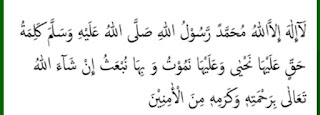 لَاۤ اِلٰهَ اِلَّا اللهُ مُحَمَّدٌ رَّسُوْلُ اللهِ صَلَّى اللهُ عَلَيْهِ وَسَلَّمَ كَلِمَةُ
حَقٍّ عَلَيْهَا نَحْيٰى وَعَلَيْهَا نَمُوْتُ وَ بِهَا نُبْعَثُ اِنْ شَآءَ اللهُ
تَعَالٰى بِرَحْمَتِهٖ وَكَرَمِهٖ مِنَ الْاٰمِنِيْنَ